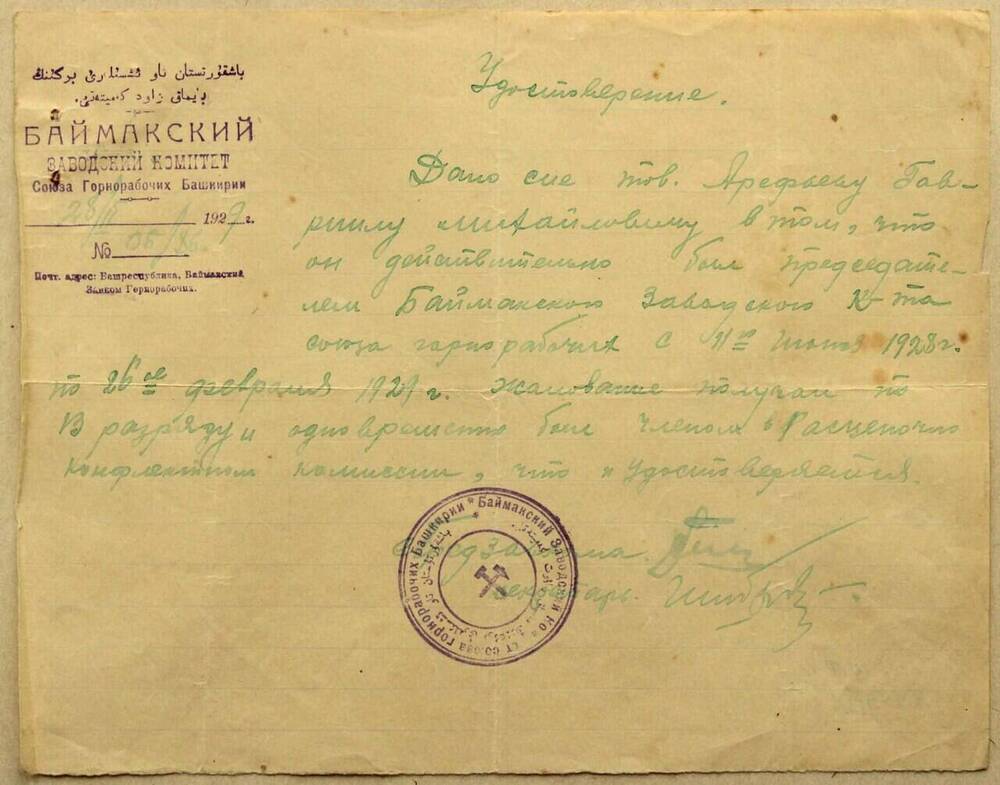 باشقورتستان تاو
بایماق زاود كمیتەتی.
БАЙМАКСКИЙ
ЗАВОДСКИЙ КОМИТЕТ
Союза Горнорабочих Башкирии
28/II 1929 г.
№
Почт. адрес: Башреспублика, Баймакский
Завком Горнорабочих.
Удостоверение.
Дано сие тов. Арефьеву Гав-
риилу Михайловичу в том, что
он действительно был председате-
лем Баймакского Заводского К-та
союза горнорабочих с 11го Июня 1928 г.
по 26ое февраля 1929 г. жалование получал по
13 разряду и одновременно был членом Расценочно
конфликтной комиссии, что и удостоверяется
Предзавкома
Секретарь
Баймакский Заводский Ком-т союза горнорабочих Башкирии *